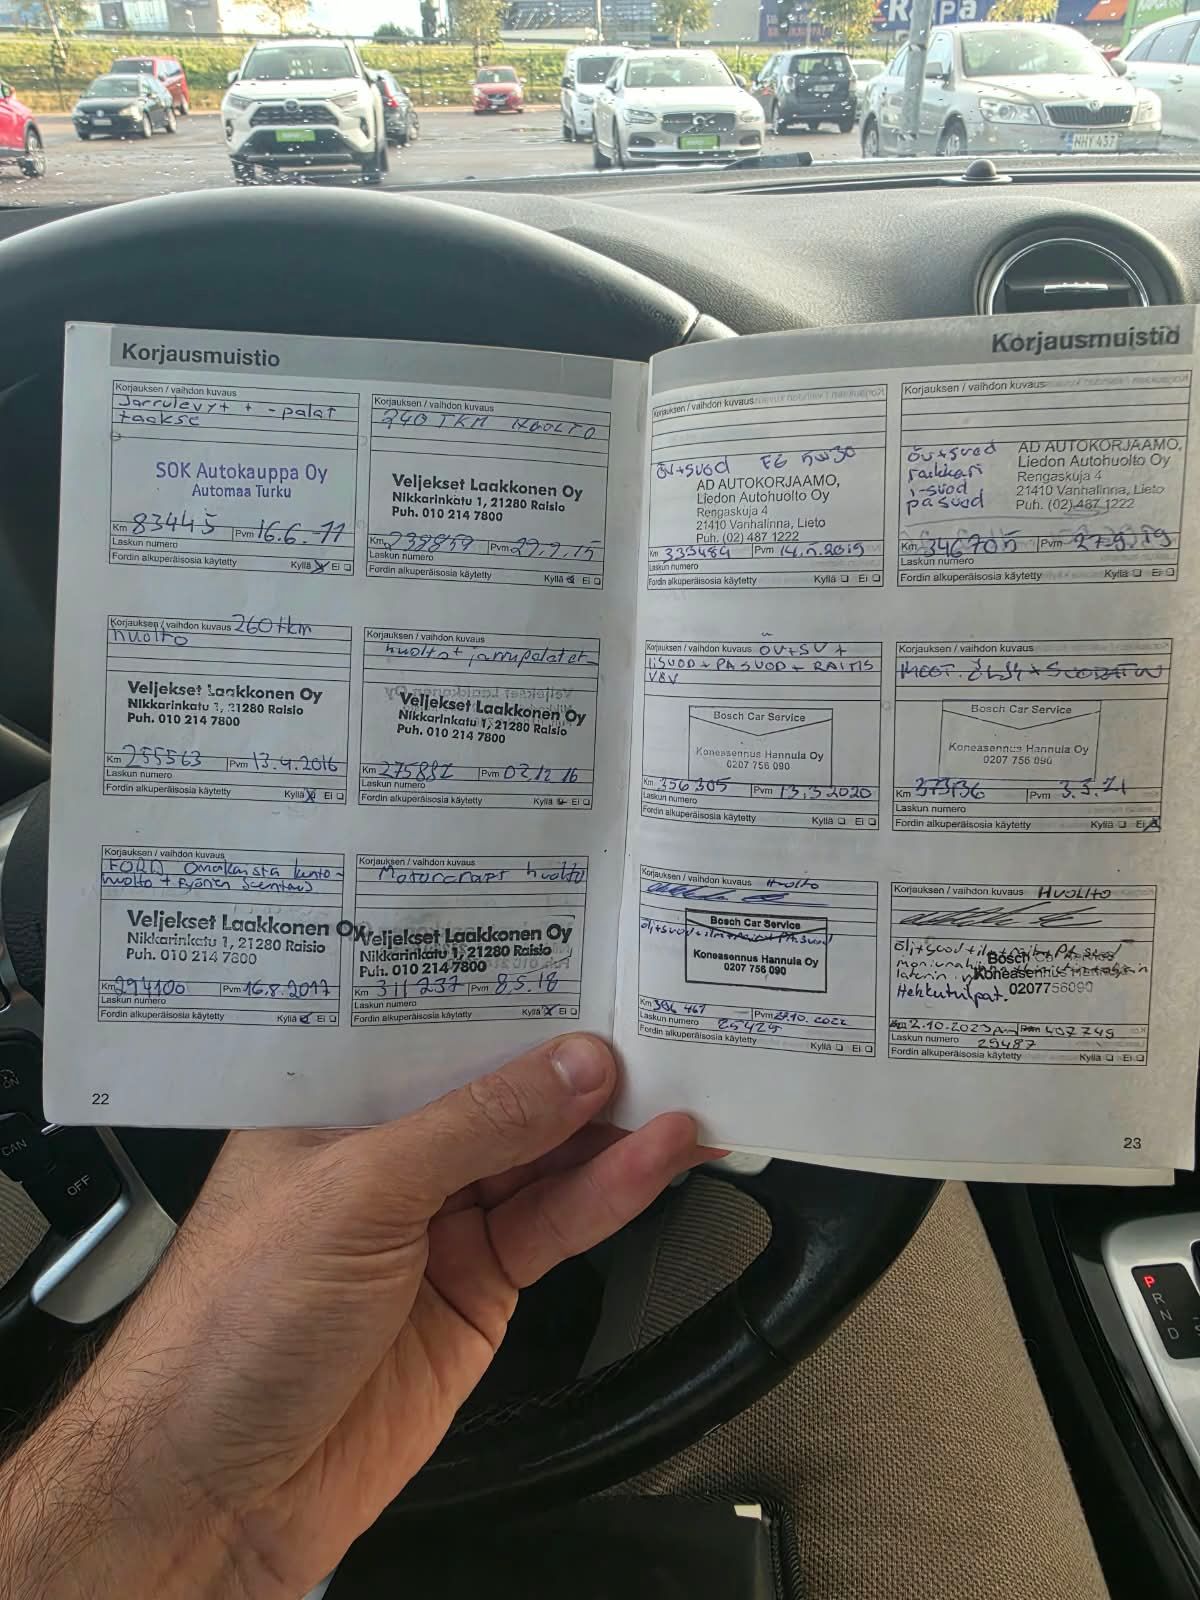 Korjausmuistio
Korjauksen / vaihdon kuvaus
Jarrulevyt + -palat
taakse
SOK Autokauppa Oy
Automaa Turku
Km 83445 Pvm 16.6.-11
Laskun numero
Fordin alkuperäisosia käytetty Kyllä Ei
Korjauksen / vaihdon kuvaus
240 TKM HUOLTO
Veljekset Laakkonen Oy
Nikkarinkatu 1, 21280 Raisio
Puh. 010 214 7800
Km 239859 Pvm 29.9.15
Laskun numero
Fordin alkuperäisosia käytetty Kyllä Ei
Korjauksen / vaihdon kuvaus 260tkm
huolto
Veljekset Laakkonen Oy
Nikkarinkatu 1, 21280 Raisio
Puh. 010 214 7800
Km 255563 Pvm 13.4.2016
Laskun numero
Fordin alkuperäisosia käytetty Kyllä Ei
Korjauksen / vaihdon kuvaus
huolto + jarrupalat et.
Veljekset Laakkonen Oy
Nikkarinkatu 1, 21280 Raisio
Puh. 010 214 7800
Km Pvm 02.12.16
Laskun numero
Fordin alkuperäisosia käytetty Kyllä Ei
Korjauksen / vaihdon kuvaus
FORD Omakaista kunto-
huolto +
Veljekset Laakkonen Oy
Nikkarinkatu 1, 21280 Raisio
Puh. 010 214 7800
Km 294100 Pvm 16.8.2017
Laskun numero
Fordin alkuperäisosia käytetty Kyllä Ei
Korjauksen / vaihdon kuvaus
Motorcraft huolto
Veljekset Laakkonen Oy
Nikkarinkatu 1, 21280 Raisio
Puh. 010 214 7800
Km 311237 Pvm 8.5.18
Laskun numero
Fordin alkuperäisosia käytetty Kyllä Ei
22
Korjausmuistio
Korjauksen / vaihdon kuvaus
öv+suod 5w30
AD AUTOKORJAAMO,
Liedon Autohuolto Oy
Rengaskuja 4
21410 Vanhalinna, Lieto
Puh. (02) 487 1222
Km 335484 Pvm 14.5.2019
Laskun numero
Fordin alkuperäisosia käytetty Kyllä Ei
Korjauksen / vaihdon kuvaus
öv+suod
raikkari
i-suod
pasuod
AD AUTOKORJAAMO,
Liedon Autohuolto Oy
Rengaskuja 4
21410 Vanhalinna, Lieto
Puh. (02) 487 1222
Km 346705 Pvm
Laskun numero
Fordin alkuperäisosia käytetty Kyllä Ei
Korjauksen / vaihdon kuvaus ÖV+SV+
IISUOD + PA SUOD + RAITIS
Bosch Car Service
Koneasennus Hannula Oy
0207 756 090
Km 356305 Pvm 13.3.2020
Laskun numero
Fordin alkuperäisosia käytetty Kyllä Ei
Korjauksen / vaihdon kuvaus
MOOT. ÖLJY + SUODATIN
Bosch Car Service
Koneasennus Hannula Oy
0207 756 090
Km 373136 Pvm 3.3.21
Laskun numero
Fordin alkuperäisosia käytetty Kyllä Ei
Korjauksen / vaihdon kuvaus Huolto
Bosch Car Service
Koneasennus Hannula Oy
0207 756 090
Km Pvm .10.2022
Laskun numero 25429
Fordin alkuperäisosia käytetty Kyllä Ei
Korjauksen / vaihdon kuvaus HUOLTO
Bosch
Koneasennus
Hehkutulpat. 0207756090
2.10.2023 407749
Laskun numero 29487
Fordin alkuperäisosia käytetty Kyllä Ei
23
NHY 437
ON
CAN
OFF
P
R
N
D